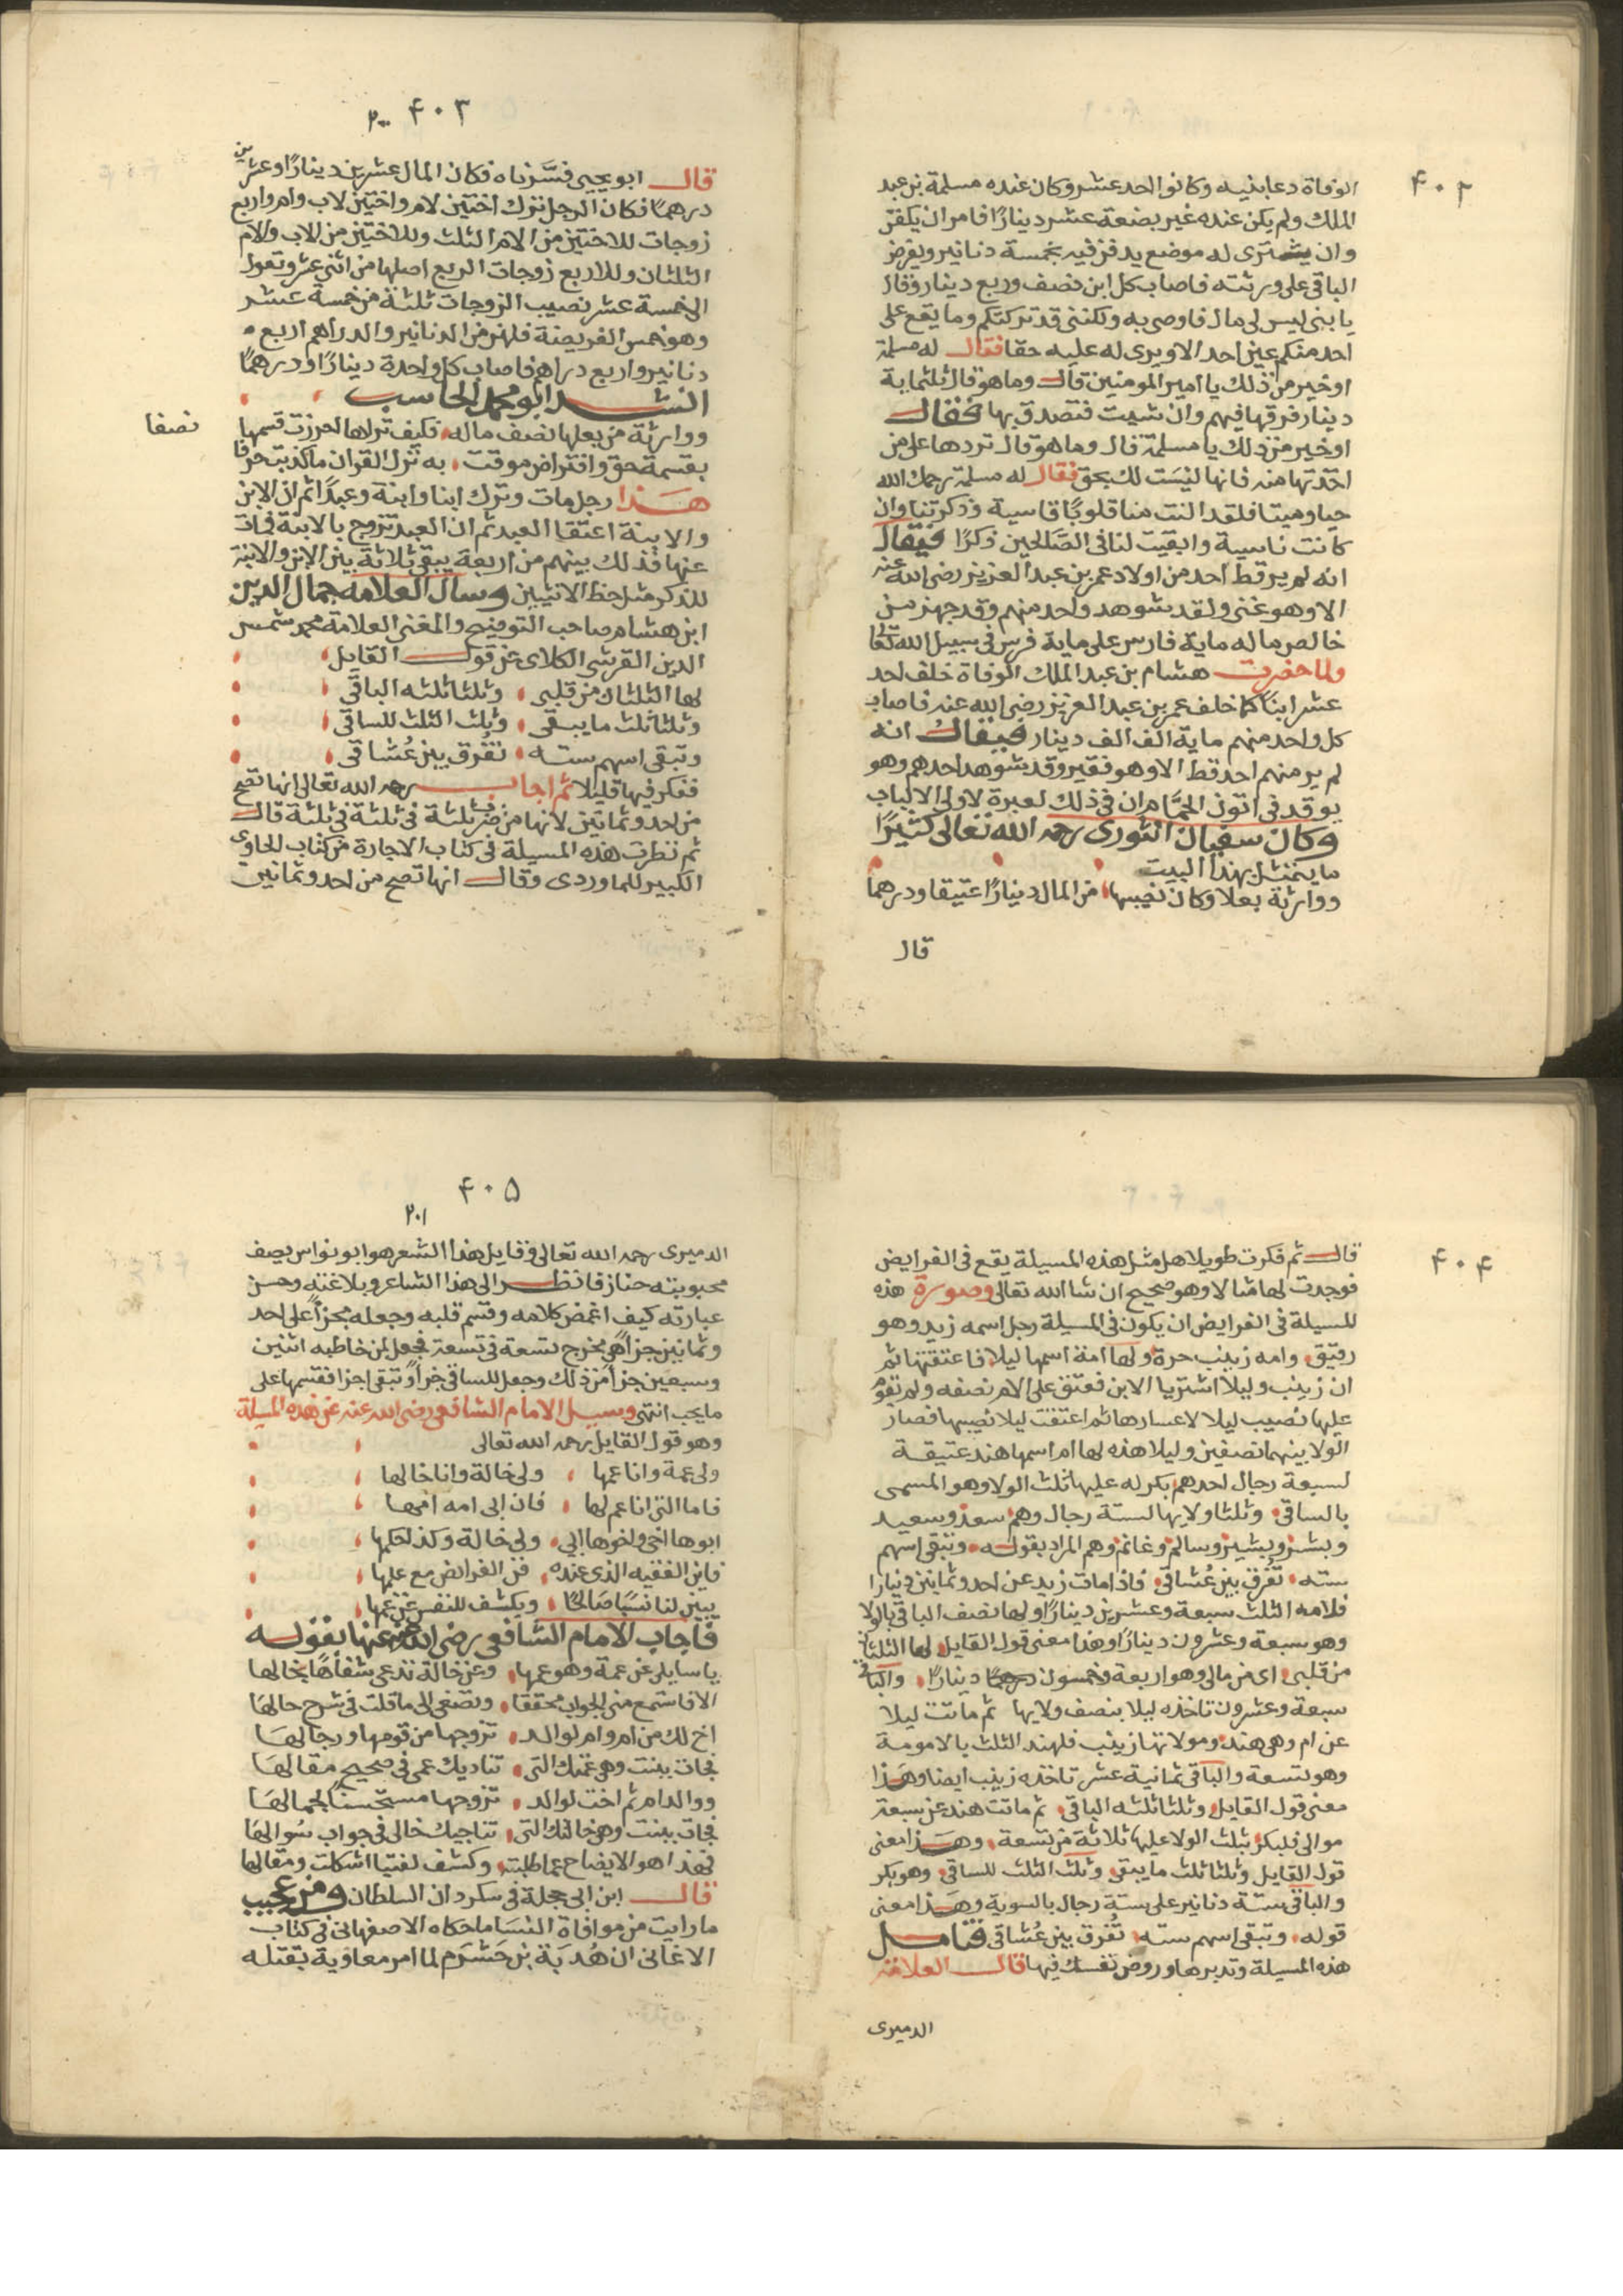 ۴۰۲
الوفاة دعا بنيه وكانوا احد عشر وكان عنده مسلمة بن عبد
الملك ولم يكن عنده غير بضعة عشر دينارًا فامر ان يكفن
وان يشترى له موضع يدفن فيه بخمسة دنانير ويفرض
الباقى على ورثته فاصاب كل ابن نصف وربع دينار وقال
يا بنى ليس لى مال فاوصى به ولكننى قد تركتكم وما يقع على
احد منكم عين احد الا ويرى له عليه حقا فقال له مسلمة
او خير من ذلك يا امير المومنين قال وما هو قال ثلثماية
دينار فرقها فيهم وان شيت فتصدق بها فقال
او خير من ذلك يا مسلمة قال وما هو قال تردها على من
اخذتها منه فانها ليست لك بحق فقال له مسلمة رحمك الله
حيا وميتا فلقد النت منا قلوبًا قاسية وذكرتنا وان
كانت ناسية وابقيت لنا فى الصالحين ذكرًا فيقال
انه لم ير قط احد من اولاد عمر بن عبد العزيز رضى الله عنه
الا وهو غنى ولقد شوهد واحد منهم وقد جهز من
خالص ماله ماية فارس على ماية فرس فى سبيل الله تعالى
ولما حضرت هشام بن عبد الملك الوفاة خلف احد
عشر ابنًا كما خلف عمر بن عبد العزيز رضى الله عنه فاصاب
كل واحد منهم ماية الف الف دينار فيقال انه
لم ير منهم احد قط الا وهو فقير وقد شوهد احدهم وهو
يوقد فى اتون الحمام ان فى ذلك لعبرة لاولى الالباب
وكان سفيان الثورى رحمه الله تعالى كثيرًا
ما يتمثل بهذا البيت
ووارثة بعلا وكان نصيبها من المال دينارًا عتيقا ودرهما
قال
۴۰۳
۲۰۰
قال ابو يحيى فسّرناه فكان المال عشرين دينارًا وعشرين
درهمًا فكان الرجل ترك اختين لام واختين لاب وام واربع
زوجات للاختين من الام الثلث وللاختين من الاب والام
الثلثان وللاربع زوجات الربع اصلها من اثنى عشر وتعول
الى خمسة عشر نصيب الزوجات ثلثة من خمسة عشر
وهو خمس الفريضة فلهن من الدنانير والدراهم اربع
دنانير واربع دراهم فاصاب كل واحدة دينارًا ودرهمًا
انشد ابو محمد الحاسب
ووارثة من بعلها نصف ماله فكيف تراها احرزت قسمها
نصفا
بقسمة حق وافتراض موقت به نزل القران ما كذبت حرفا
هذا رجل مات وترك ابنا وابنة وعبدًا ثم ان الابن
والابنة اعتقا العبد ثم ان العبد تزوج بالابنة فمات
عنها فذلك بينهم من اربعة يبقى ثلاثة بين الابن والابنة
للذكر مثل حظ الانثيين وسال العلامة جمال الدين
ابن هشام صاحب التوضيح والمغنى العلامة محمد شمس
الدين القرشى الكلاى عن قول القايل
لها الثلثان من قلبى وثلثا ثلثه الباقى
وثلثا ثلث ما يبقى وثلث الثلث للساقى
وتبقى اسهم سته تفرق بين عُشاقى
ففكر فيها قليلا ثم اجاب رحمه الله تعالى انها تصح
من احد وثمانين لانها من ضرب ثلثة فى ثلثة فى ثلثة قال
ثم نظرت هذه المسيلة فى كتاب الاجارة من كتاب الحاوى
الكبير للماوردى وقال انها تصح من احد وثمانين
۴۰۴
قال ثم فكرت طويلا هل مثل هذه المسيلة يقع فى الفرايض
فوجدت لها مثالا وهو صحيح ان شا الله تعالى وصورة هذه
المسيلة فى الفرايض ان يكون فى المسيلة رجل اسمه زيد وهو
رقيق وامه زينب حرة ولها امة اسمها ليلا فاعتقتها ثم
ان زينب وليلا اشتريا الابن فعتق على الام نصفه ولم تقوم
عليها نصيب ليلا لاعسارها ثم اعتقت ليلا نصيبها فصار
الولا بينهما نصفين وليلا هذه لها ام اسمها هند عتيقة
لسبعة رجال احدهم بكر له عليها ثلث الولا وهو المسمى
بالساقى وثلثا ولايها لستة رجال وهم سعد وسعيد
وبشر وبشير وسالم وغانم وهم المراد بقوله وتبقى اسهم
سته تفرق بين عُشاقى فاذا مات زيد عن احد وثمانين دينارا
فلامه الثلث سبعة وعشرين دينارًا ولها نصف الباقى بالولا
وهو سبعة وعشرون دينارًا وهذا معنى قول القايل لها الثلثان
من قلبى اى من مالى وهو اربعة وخمسون دينارًا والباقى
سبعة وعشرون تاخذه ليلا بنصف ولايها ثم ماتت ليلا
عن ام وهى هند ومولاتها زينب فلهند الثلث بالامومة
وهو تسعة والباقى ثمانية عشر تاخذه زينب ايضا وهذا
معنى قول القايل وثلثا ثلثه الباقى ثم ماتت هند عن سبعة
موالى فلبكر ثلث الولا عليها ثلاثة من تسعة وهذا معنى
قول القايل وثلثا ثلث ما يبقى وثلث الثلث للساقى وهو بكر
والباقى ستة دنانير على ستة رجال بالسوية وهذا معنى
قوله وتبقى اسهم سته تُفرق بين عُشاقى فتامل
هذه المسيلة وتدبرها وروض نفسك فيها قال العلامة
الدميرى
۴۰۵
۲۰۱
الدميرى رحمه الله تعالى وقايل هذا الشعر هو ابو نواس يصف
محبوبته حناز فانظر الى هذا الشاعر وبلاغته وحسن
عبارته كيف اغمض كلامه وقسم قلبه وجعله مجزأ على احد
وثمانين جزأ هى مخرج تسعة فى تسعة فجعل لمن خاطبه اثنين
وسبعين جزأ من ذلك وجعل للساقى جزأ وتبقى اجزا فقسمها على
ما يحب انتهى وسيل الامام الشافعى رضى الله عنه عن هذه المسيلة
وهو قول القايل رحمه الله تعالى
ولى عمة وانا عمها ولى خالة وانا خالها
فاما التى انا عم لها فان ابى امه امها
ابوها اخى واخوها ابى ولى خالة وكذا حكمها
فاين الفقيه الذى عنده فن الفرائض مع علمها
يبين لنا نسبًا صالحًا ويكشف للنفس عن غمها
فاجاب الامام الشافعى رضى الله عنه عنها بقوله
يا سايلى عن عمة وهو عمها وعن خالة تدعى شفاهًا بخالها
الا فاستمع منى الجواب محققا وتصغى الى ما قلت فى شرح حالها
اخ لك من ام وام لوالد تزوجها من قومها ورجالها
فجات ببنت وهى عمتك التى تناديك عمى فى صحيح مقالها
ووالد ام ثم اخت لوالد تزوجها مستحسنًا لجمالها
فجات ببنت وهى خالتك التى تناجيك خالى فى جواب سُوالها
فهذا هو الايضاح عما طلبته وكشف لفتيا اشكلت ومقالها
قال ابن ابى حجلة فى سكردان السلطان ومن عجيب
ما رايت من موافاة النسا ما حكاه الاصفهانى فى كتاب
الاغانى ان هُدبَة بن خَشرَم لما امر معاوية بقتله